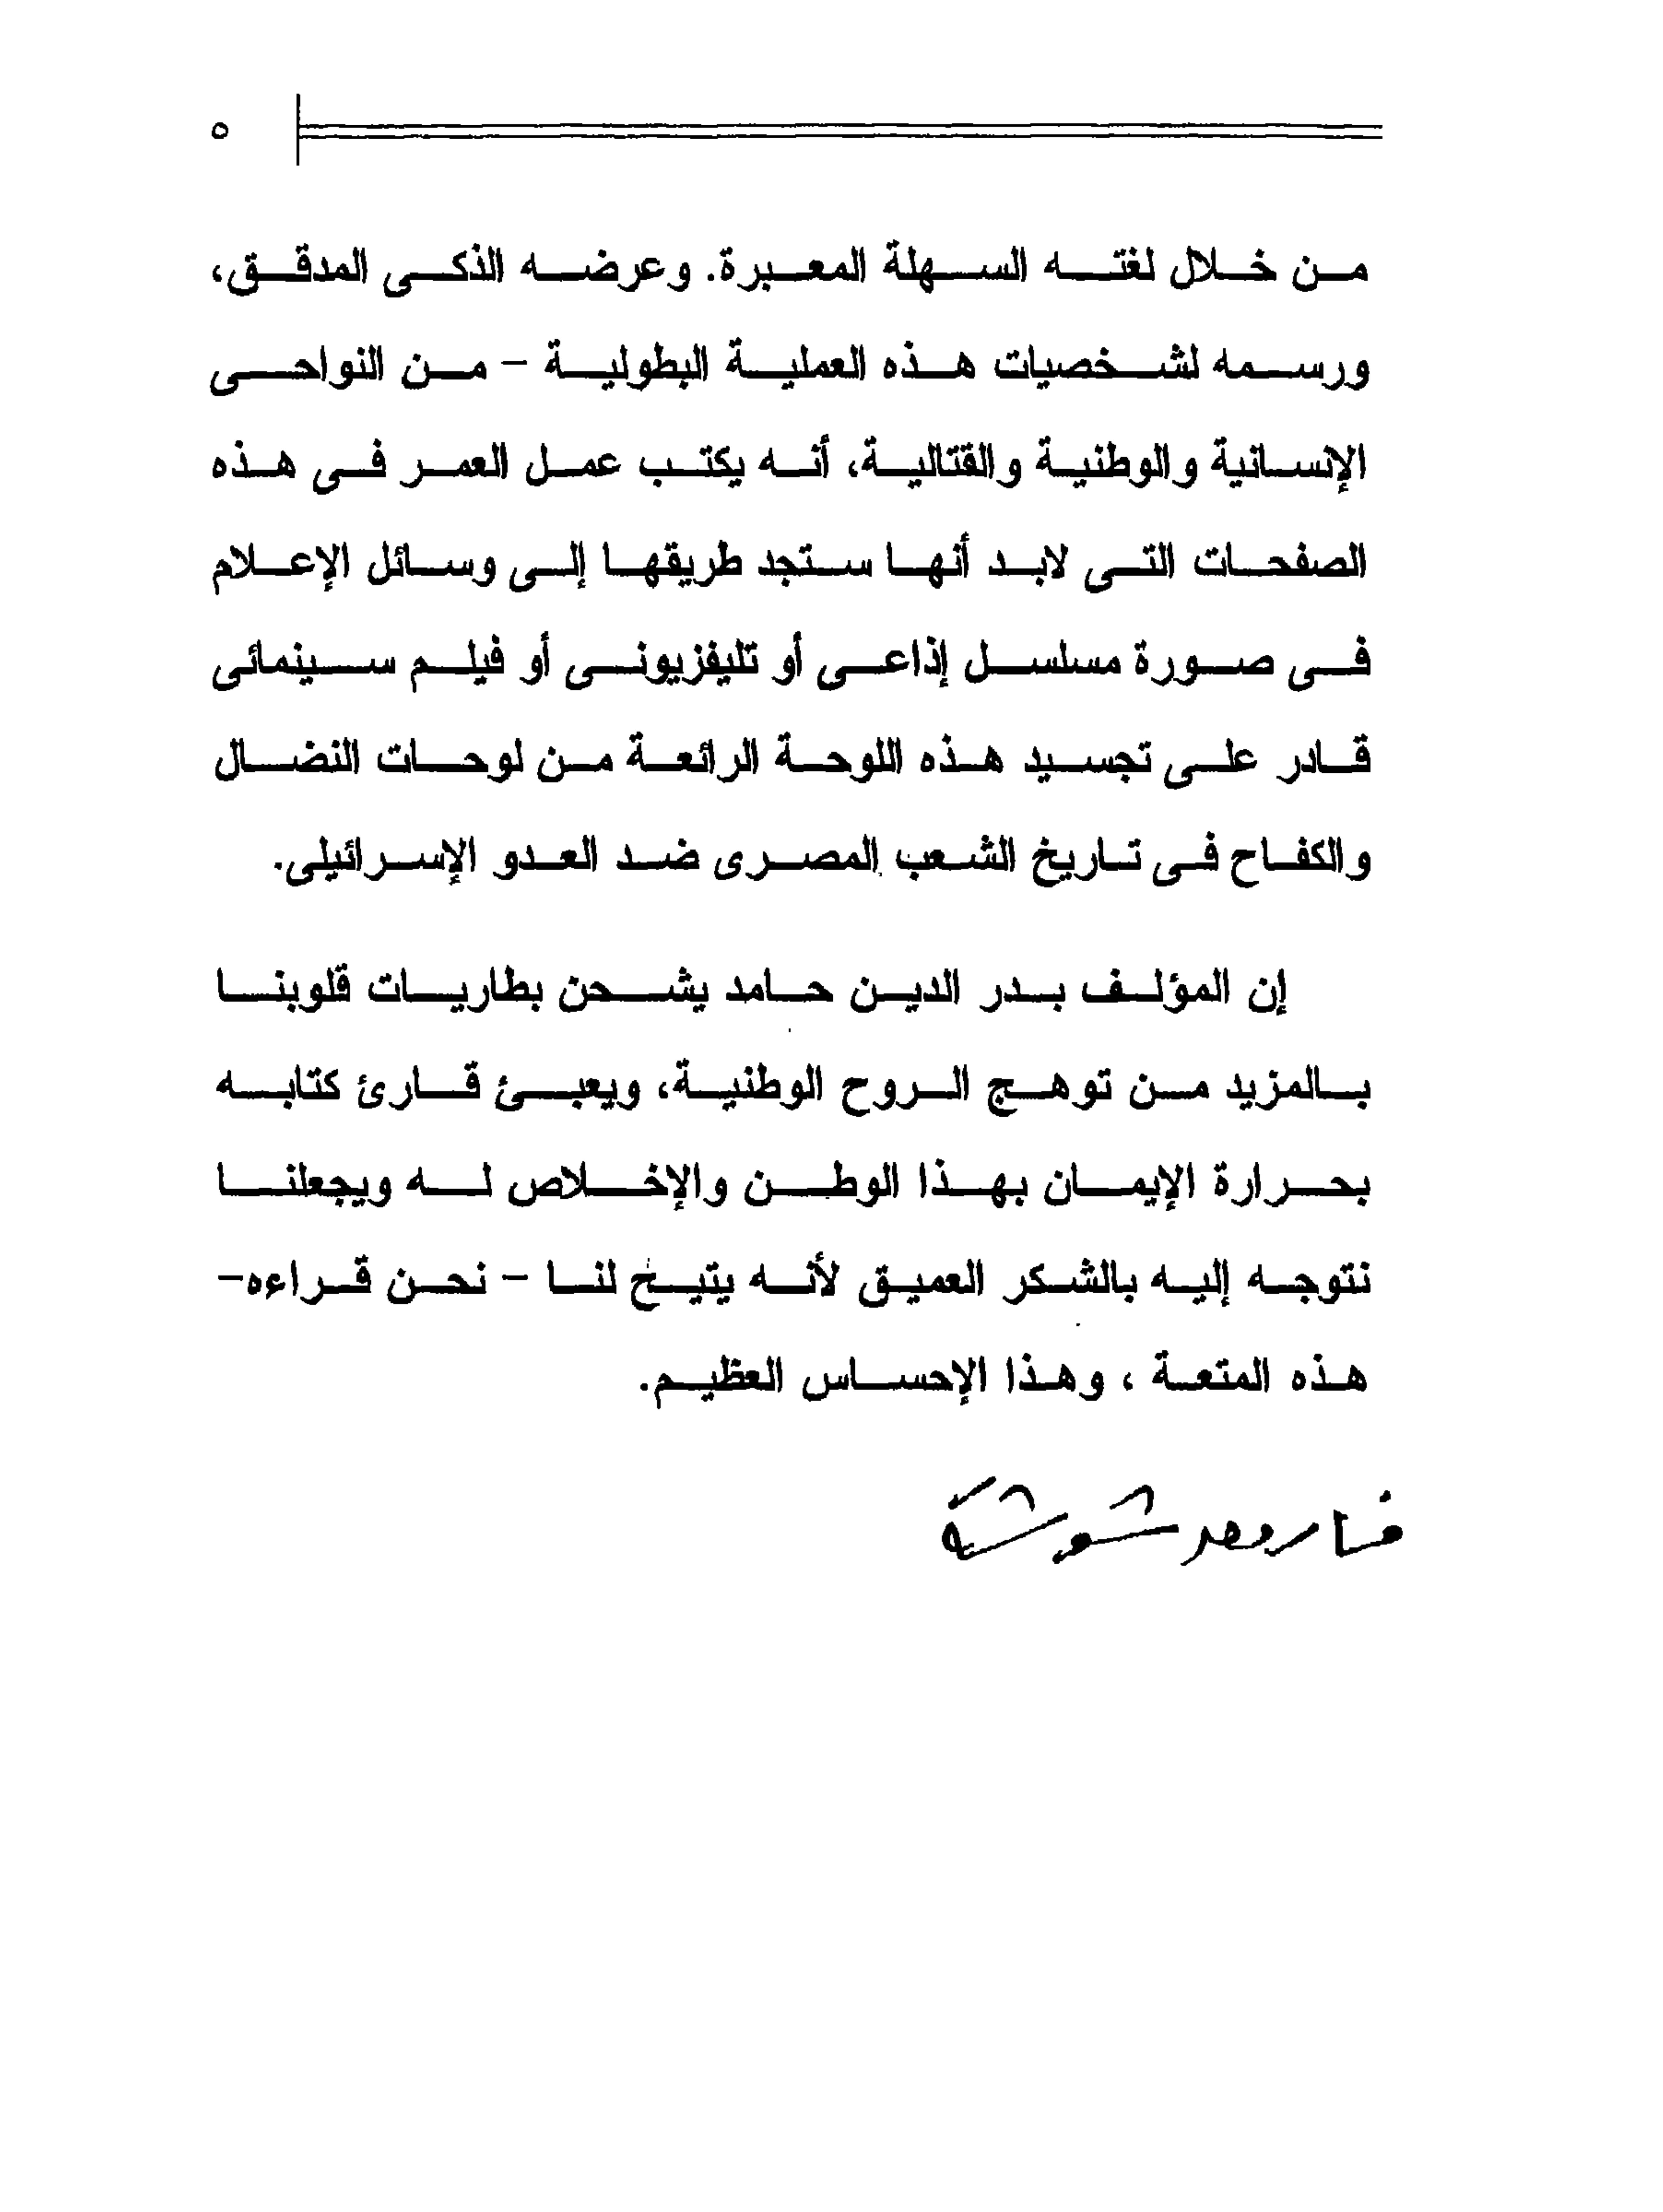 ٥
من خلال لغته السهلة المعبرة. وعرضه الذكى المدقق،
ورسمه لشخصيات هذه العملية البطولية - من النواحى
الإنسانية والوطنية والقتالية، أنه يكتب عمل العمر فى هذه
الصفحات التى لابد أنها ستجد طريقها إلى وسائل الإعلام
فى صورة مسلسل إذاعى أو تليفزيونى أو فيلم سينمائى
قادر على تجسيد هذه اللوحة الرائعة من لوحات النضال
والكفاح فى تاريخ الشعب المصرى ضد العدو الإسرائيلى.
إن المؤلف بدر الدين حامد يشحن بطاريات قلوبنا
بالمزيد من توهج الروح الوطنية، ويعبئ قارئ كتابه
بحرارة الإيمان بهذا الوطن والإخلاص له ويجعلنا
نتوجه إليه بالشكر العميق لأنه يتيح لنا - نحن قراءه-
هذه المتعة ، وهذا الإحساس العظيم.
فاروق شوشة